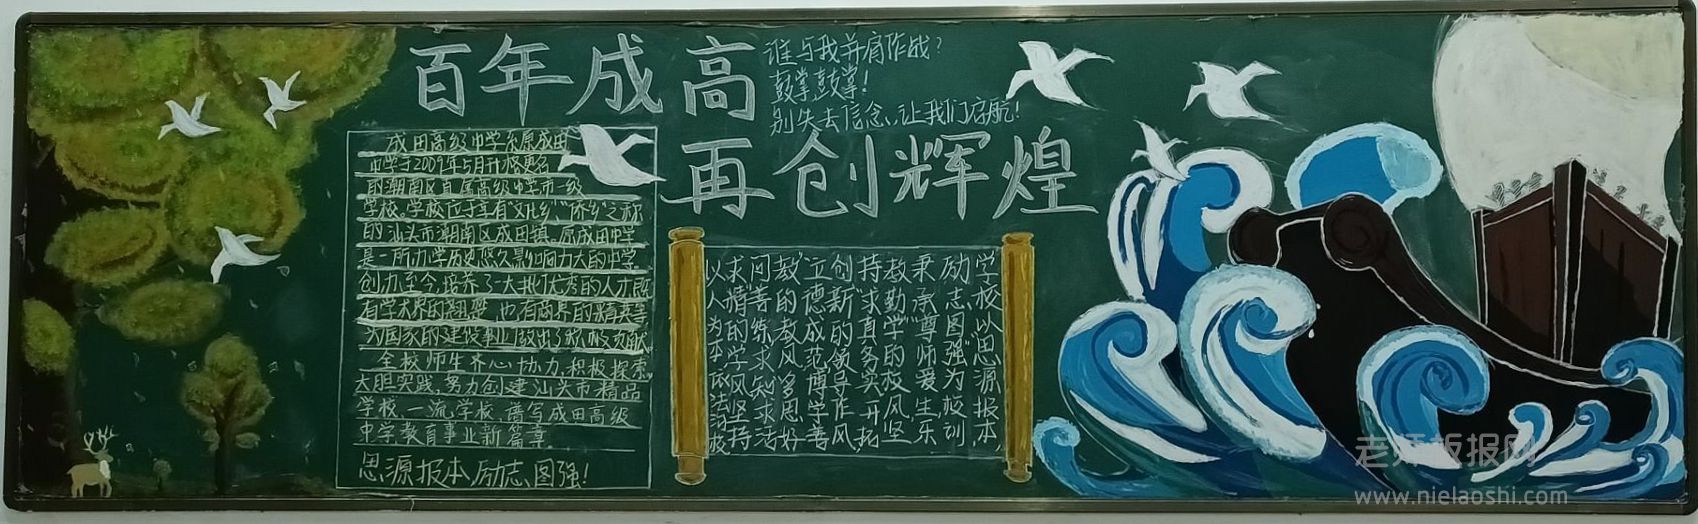 百年成高
再创辉煌
谁与我并肩作战?
鼓掌,鼓掌!
别失去信念,让我们启航!
成田高级中学系原成田
中学于2009年5月升格更名
的潮南区直属高级中学市一级
学校。学校位于享有"文化乡"、"侨乡"之称
的汕头市潮南区成田镇。原成田中学
是一所办学历史悠久影响力大的中学
创办至今,培养了一大批优秀的人才,既
有学术界的翘楚,也有商界的精英等
为国家的建设事业做出了积极贡献
全校师生齐心协力,积极探索
大胆实践,努力创建汕头市精品
学校、一流学校,谱写成田高级
中学教育事业新篇章
思源报本,励志图强!
学校以思源报本,
励志图强"为校训
秉承"尊师爱生,乐
教勤学"的校风,坚
持"求真务实,开拓
创新"的领导作风,
"立德成范,博学善
教"的教风,"多思好
问,善练求知,求活
求精"的学风,坚持
以人为本,依法治校
老师板报网
www.nielaoshi.com